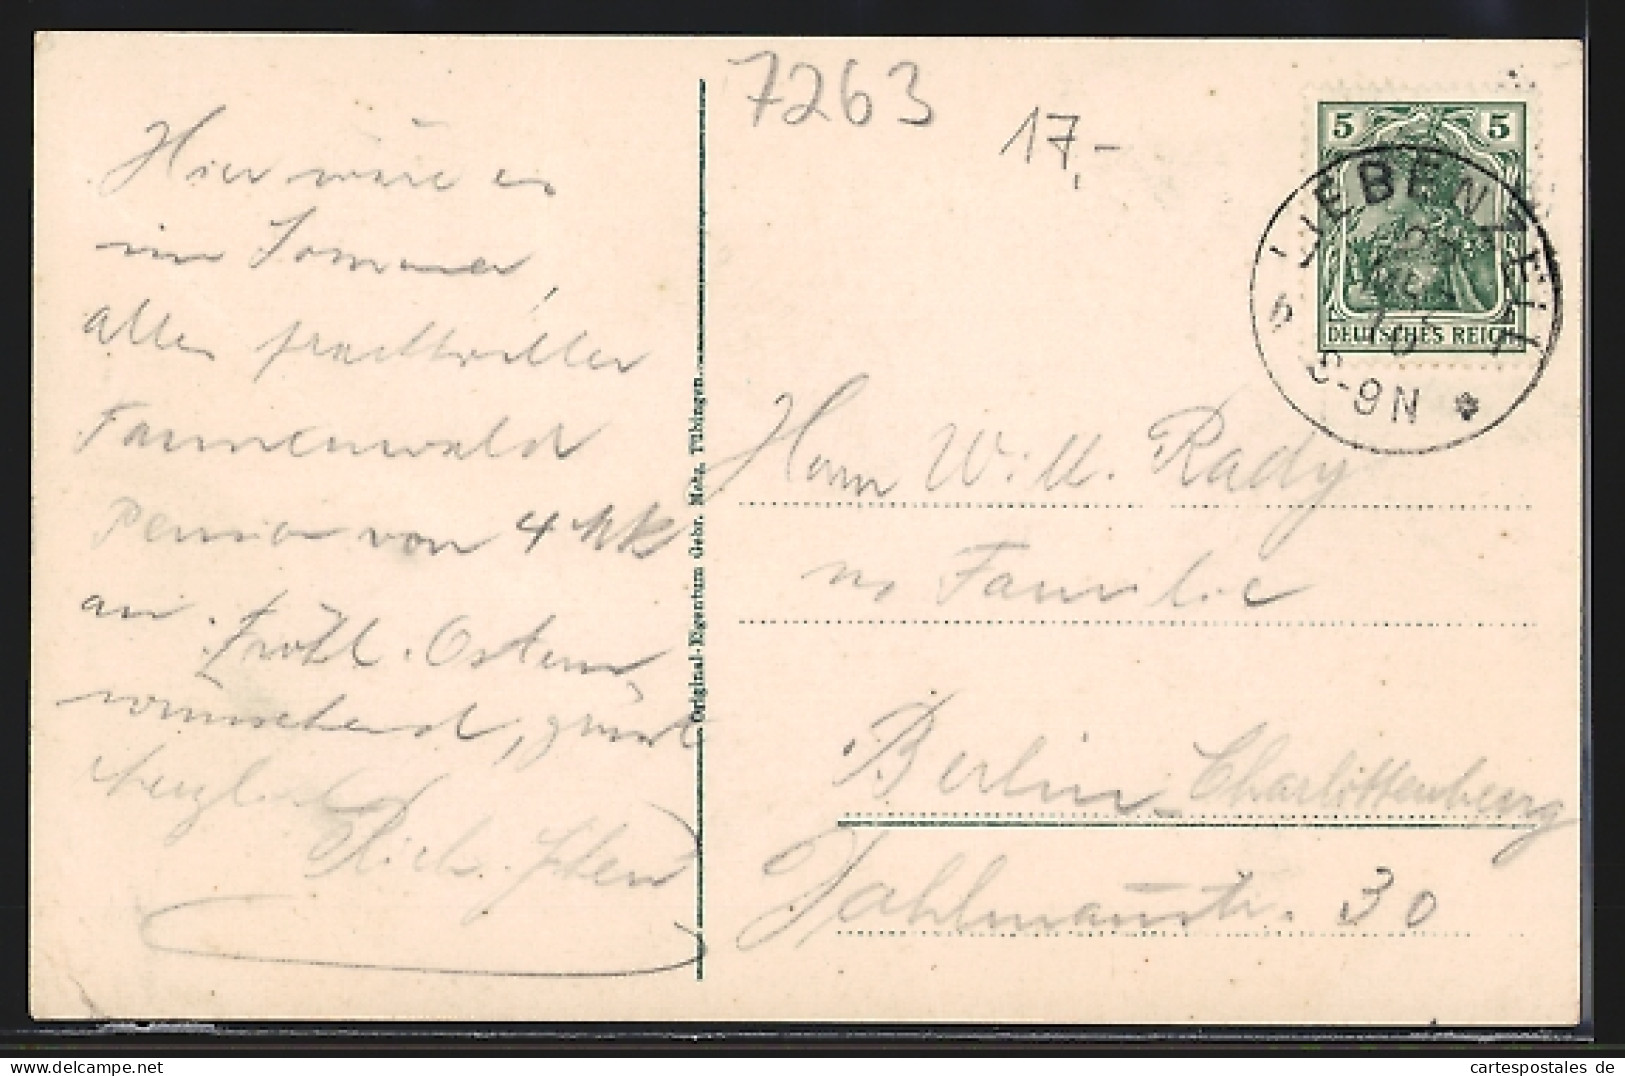 7263
17,-
5 5
LIEBENZELL
DEUTSCHES REICH
8-9N
Hier wäre es
im Sommer,
alles prachtvoller
Tannenwald
Pension von 4 Mk
an. Fröhl. Ostern
wünschend, grüsst
herzlichst
Rich.
Original-Eigentum Gebr. Metz, Tübingen.
Herrn Will. Rady
u. Familie
Berlin-Charlottenburg
Dahlmannstr. 30
cartespostales de